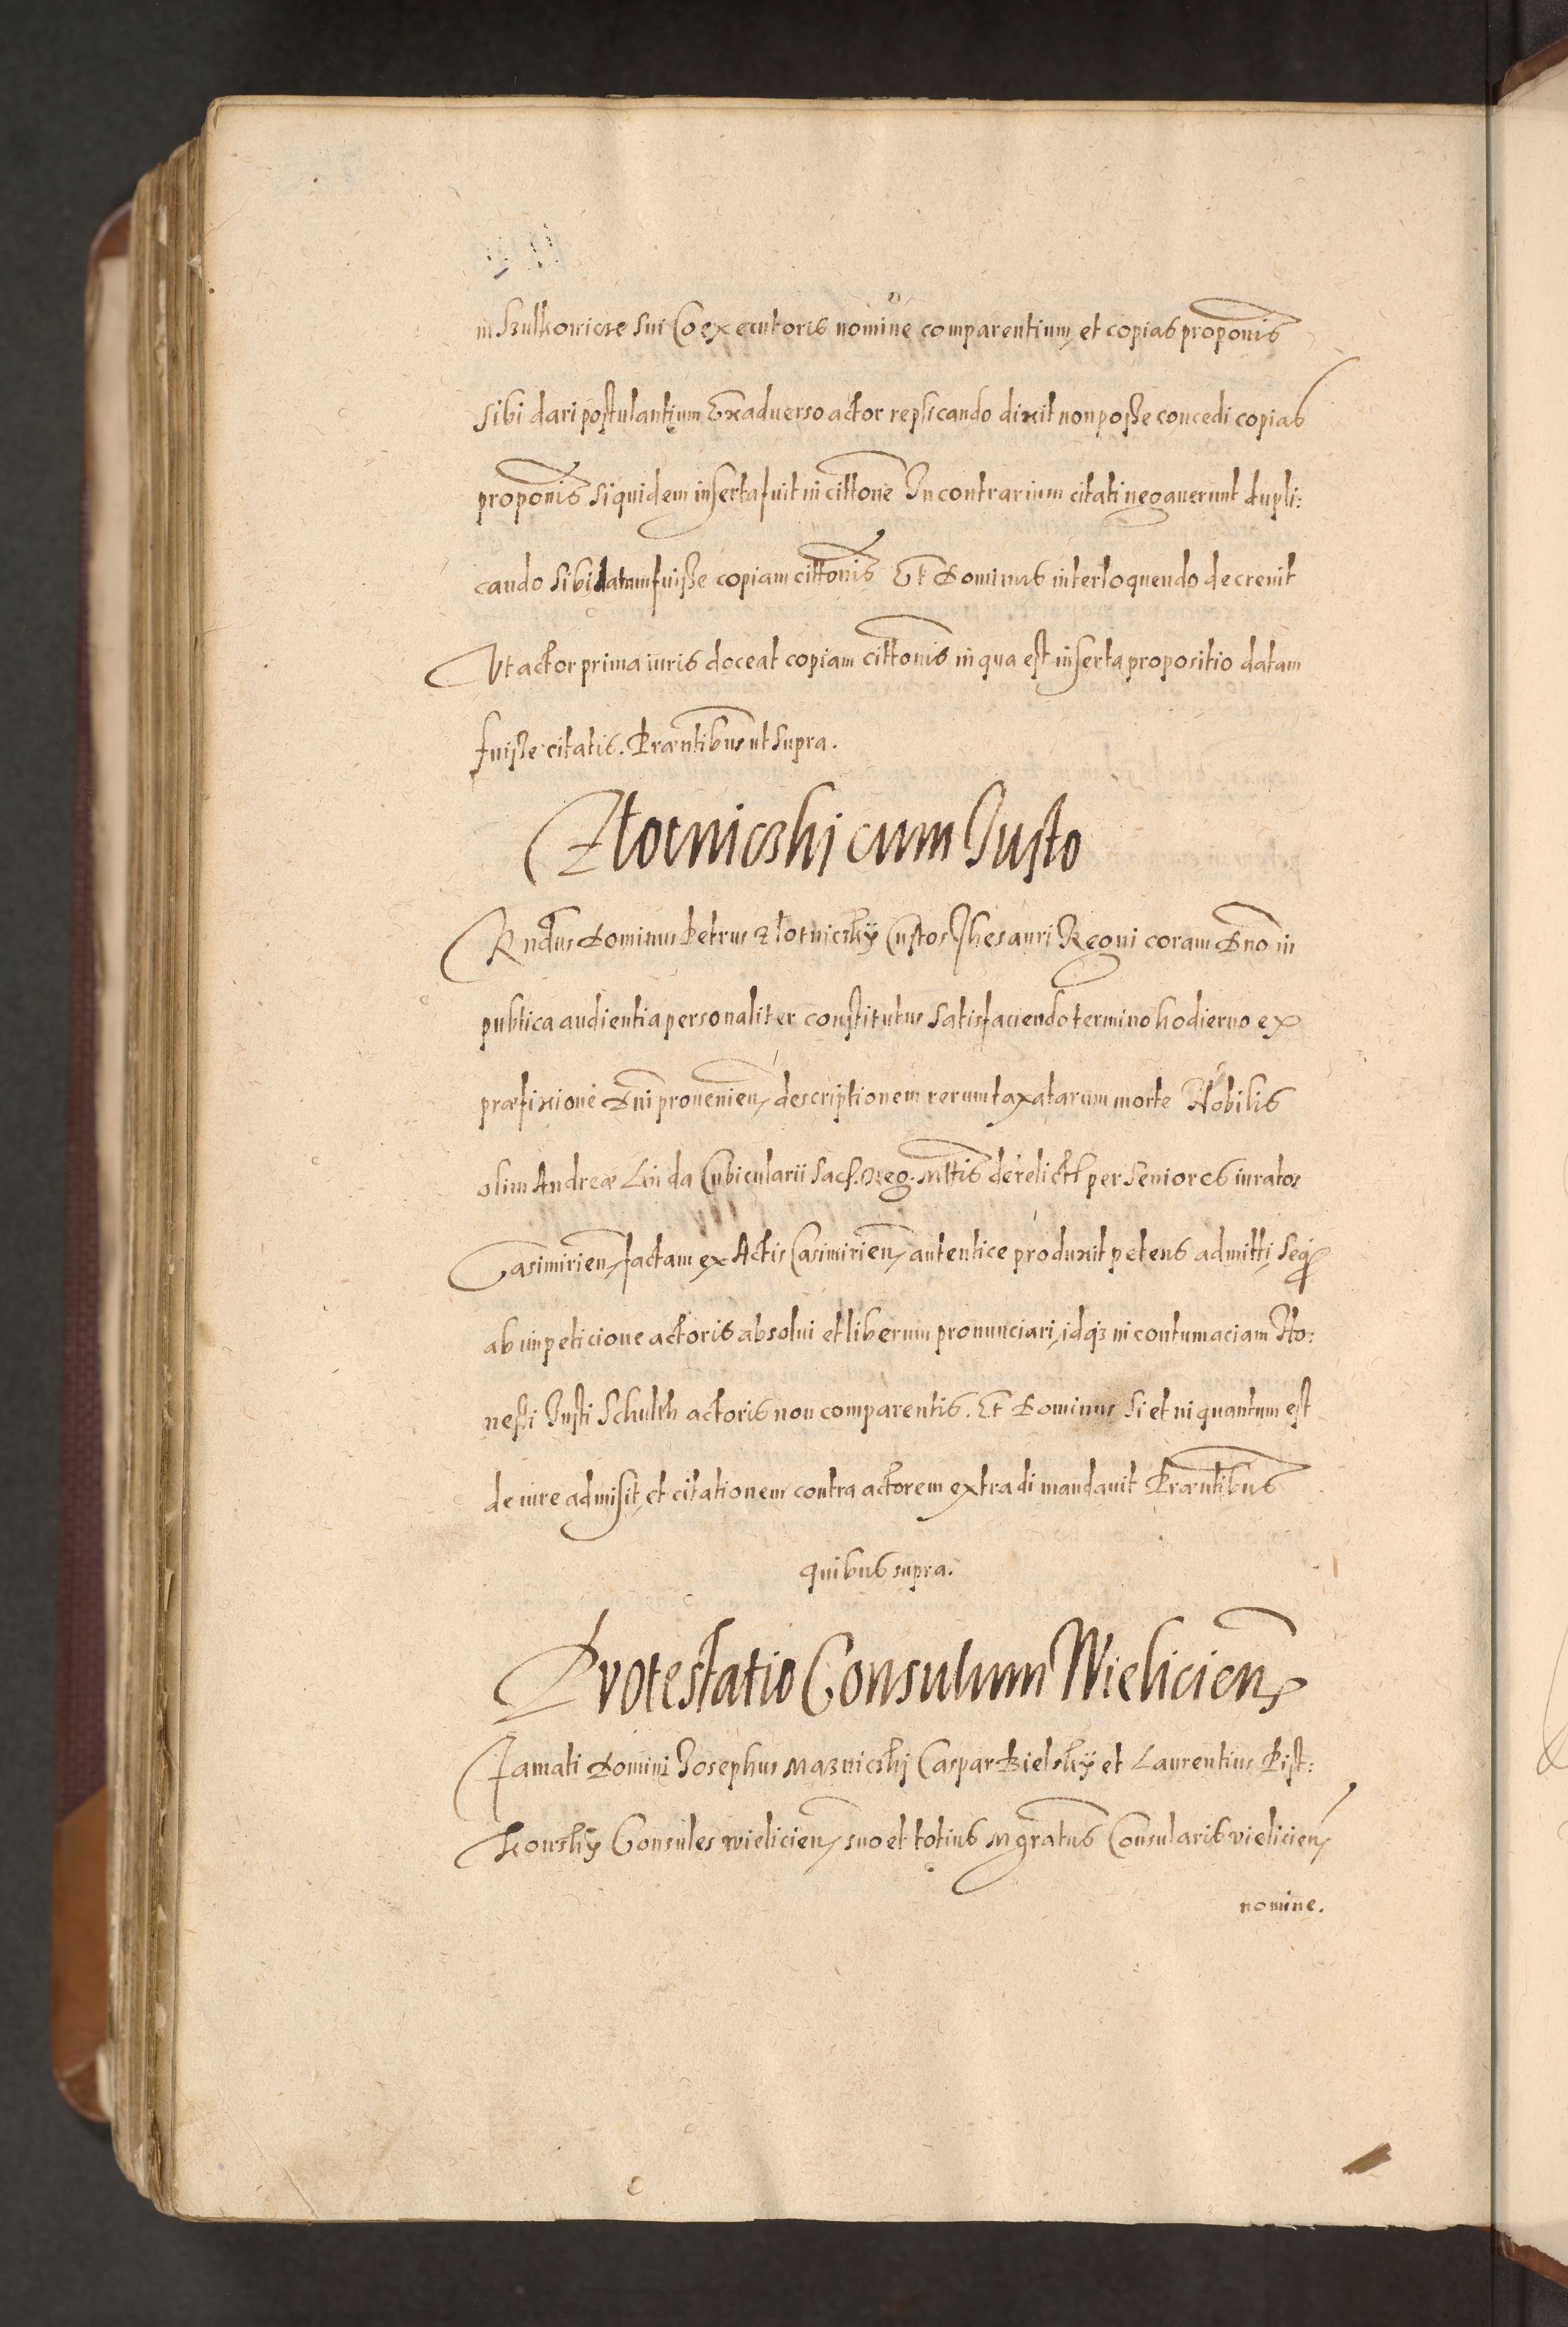 in Szulkowicze sui Coexecutoris nomine comparentium, et copias proponis
sibi dari postulantium Exaduerso actor replicando dixit non posse concedi copias
proponis siquidem inserta fuit in cittone In contrarium citati negauerunt dupli:
cando sibi datam fuisse copiam cittonis Et Dominus interloquendo decreuit
Vt actor prima iuris doceat copiam cittonis in qua est inserta propositio datam
fuisse citatis. Præntibus ut supra.
Zlotniczki cum Justo
Rndus Dominus Petrus Zlotniczky Custos Thesauri Regni coram Dno in
publica audientia personaliter constitutus satisfaciendo termino hodierno ex
præfixione Dni prouenien, descriptionem rerum taxatarum morte Nobilis
olim Andreæ Linda Cubicularii Sacr. Reg. Mttis derelict per seniores iuratos
Casimirien, factam ex Actis Casimirien, autentice produxit petens admitti, seq
ab impeticione actoris absolui et liberum pronunciari, idq3 in contumaciam Ho:
nesti Justi Schulth actoris non comparentis. Et Dominus si et in quantum est
de iure admisit, et citationem contra actorem extradi mandauit Præntibus
quibus supra.
Protestatio Consulum Wielicien,
Famati Domini Josephus Mazniczkj Caspar Bielsky et Laurentius Pist:
kowsky Consules Wielicien, suo et totius Mgratus Consularis vielicien,
nomine.